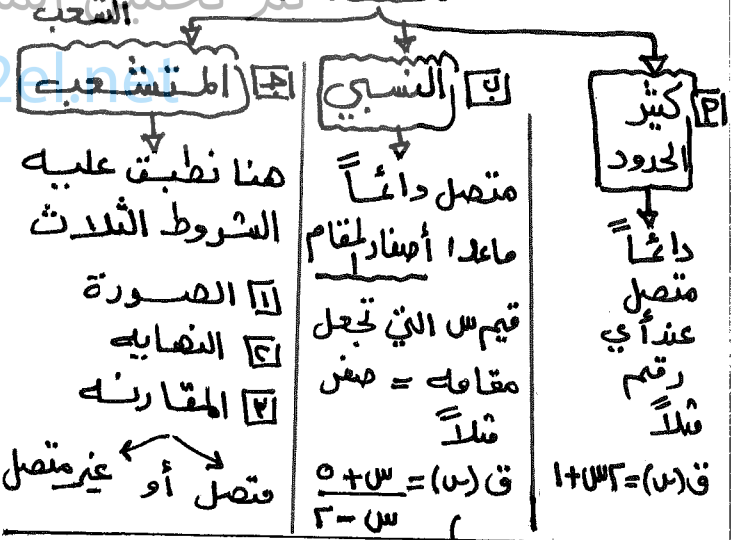 الشعب
2el.net
[أ] كثير
الحدود
دائماً
متصل
عند أي
رقم
مثلاً
ق(س)=٢س+١
[ب] النسبي
متصل دائماً
ماعدا أصفار المقام
قيم س التي تجعل
مقامه = صفر
مثلاً
ق(س) = س+٥
س-٢
[جـ] المتشعب
هنا نطبق عليه
الشروط الثلاث
[١] الصورة
[٢] النهايه
[٣] المقارنه
متصل أو غير متصل